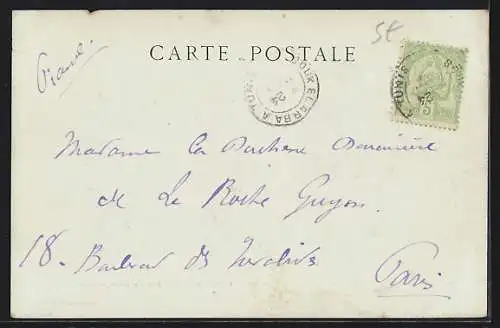 5t
France.
CARTE POSTALE
SOUK EL ARBA A TUNIS
24
A TUNIS
5
Madame La Duchesse Douairière
de La Roche Guyon
18. Boulevard des Invalides
Paris